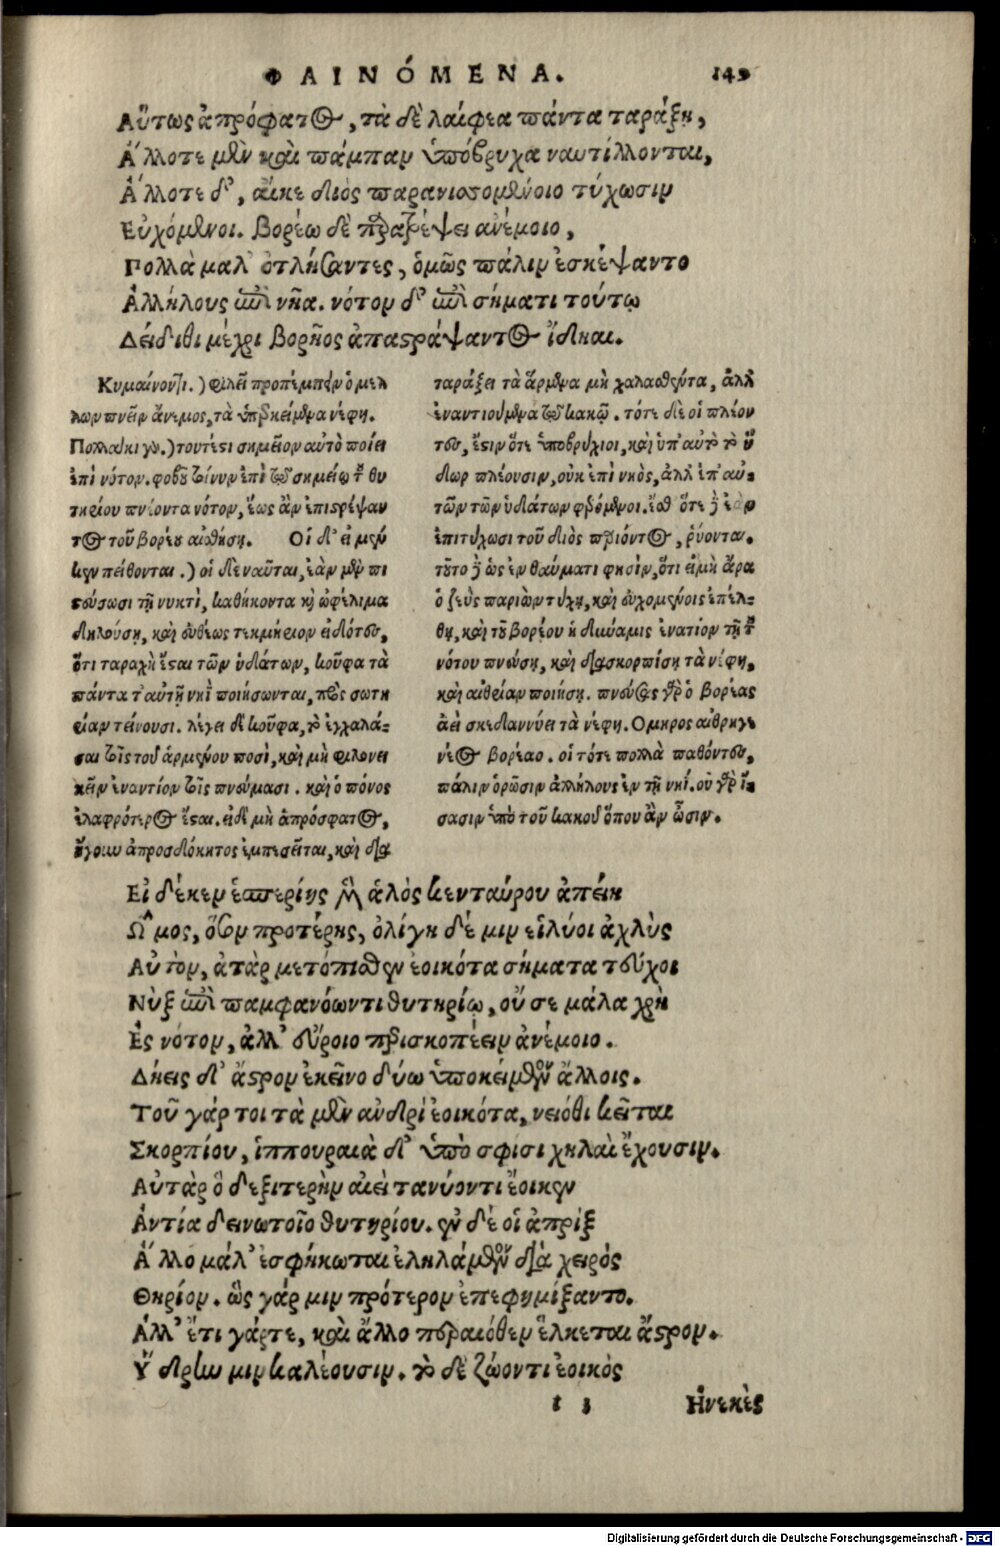 ΦΑΙΝΌΜΕΝΑ. 149
Αὔτως ἀπρόφατος, τὰ δὲ λαίφεα πάντα ταράξῃ,
Ἄλλοτε μὲν καὶ πάμπαν ὑπόβρυχα ναυτίλλονται,
Ἄλλοτε δ', αἴκε διὸς παρανισσομένοιο τύχωσιν
Εὐχόμενοι. βορέω δὲ παραστρέψει ἀνέμοιο,
Πολλὰ μαλ' ὀτλήσαντες, ὁμῶς πάλιν ἐσκέψαντο
Ἀλλήλους ἐπὶ νῆα. νότον δ' ἐπὶ σήματι τούτῳ
Δείδιθι μέχρι βορῆος ἀπαστράψαντος ἴδηαι.
Κυμαίνοντι.) φιλεῖ προπέμπειν ὁ μέλ
λων πνεῖν ἄνεμος, τὰ ὑπερκείμενα νέφη.
Πολλάκι γὰρ.) τουτέστι σημεῖον αὐτὸ ποιεῖ
ἐπὶ νότον. φοβοῦ τοίνυν ἐπὶ τῷ σημείῳ τοῦ θυ
τηρίου πνέοντα νότον, ἕως ἂν ἐπιστρέψαν
τος τοῦ βορέου αἰσθήσῃ. Οἱ δ' εἰ μέν
κεν πείθονται.) οἱ δὲ ναῦται, ἐὰν μὲν πι
στεύσωσι τῇ νυκτὶ, καθήκοντα καὶ ὠφέλιμα
δηλούσῃ, καὶ εὐθέως τεκμήριον εἰδότες,
ὅτι ταραχὴ ἔσται τῶν ὑδάτων, κοῦφα τὰ
πάντα τ' αὐτῇ νηὶ ποιήσωνται, πρὸς σωτη
ρίαν τείνουσι. λέγει δὲ κοῦφα, τὸ ἐγχαλά-
σαι τοῖς τοῦ ἀρμένου ποσὶ, καὶ μὴ φιλονει
κεῖν ἐναντίον τοῖς πνεύμασι. καὶ ὁ πόνος
ἐλαφρότερος ἔσται. εἰ δὲ μὴ ἀπρόσφατος,
ἤγουν ἀπροσδόκητος ἐμπεσεῖται, καὶ δια
ταράξει τὰ ἄρμενα μὴ χαλασθέντα, ἀλλ'
ἐναντιούμενα τῷ κακῷ. τότε δὲ οἱ πλέον
τες, ἔστιν ὅτε ὑποβρύχιοι, καὶ ὑπ' αὐτὸ τὸ ὕ
δωρ πλέουσιν, οὐκ ἐπὶ νηὸς, ἀλλ' ἐπ' αὐ-
τῶν τῶν ὑδάτων φερόμενοι. ἔσθ' ὅτε δὲ ἐὰν
ἐπιτύχωσι τοῦ διὸς παριόντος, ῥύονται.
τοῦτο δὲ ὡς ἐν θαύματι φησὶν, ὅτι εἰ μὴ ἄρα
ὁ ζεὺς παριὼν τύχῃ, καὶ εὐχομένοις ἐπέλ-
θῃ, καὶ τοῦ βορέου ἡ δύναμις ἐνατίον τῇ τοῦ
νότου πνεύσῃ, καὶ διασκορπίσῃ τὰ νέφη,
καὶ αἰθρίαν ποιήσῃ. πνεύσας γὰρ ὁ βορέας
ἀεὶ σκεδαννύει τὰ νέφη. Ομηρος αἰθρηγε
νέος βορέαο. οἱ τότε πολλὰ παθόντες,
πάλιν ὁρῶσιν ἀλλήλους ἐν τῇ νηί. οὐ γὰρ ἴ-
σασιν ὑπὸ τοῦ κακοῦ ὅπου ἂν ὦσιν.
Εἰ δέ κεν ἑσπερίης μὲν ἁλὸς κενταύρου ἀπείη
Ὦμος, ὅσον προτέρης, ὀλίγη δέ μιν εἰλύοι ἀχλὺς
Αὐτὸν, ἀτὰρ μετόπισθεν ἐοικότα σήματα τεύχοι
Νὺξ ἐπὶ παμφανόωντι θυτηρίῳ, οὔ σε μάλα χρὴ
Ἐς νότον, ἀλλ' εὔροιο περισκοπέειν ἀνέμοιο.
Δήεις δ' ἄστρον ἐκεῖνο δύω ὑποκείμενον ἄλλοις.
Τοῦ γάρ τοι τὰ μὲν ἀνδρὶ ἐοικότα, νειόθι κεῖται
Σκορπίου, ἱππουραιὰ δ' ὑπὸ σφίσι χηλαὶ ἔχουσιν.
Αὐτὰρ ὃ δεξιτερὴν αἰεὶ τανύοντι ἔοικεν
Ἀντία δεινωτοῖο θυτηρίου. ἐν δέ οἱ ἀπρὶξ
Ἄλλο μάλ' ἐσφήκωται ἐληλάμενον διὰ χειρὸς
Θηρίον. ὣς γάρ μιν πρότερον ἐπεφημίξαντο.
Ἀλλ' ἔτι γάρ τε, καὶ ἄλλο περαιόθεν ἕλκεται ἄστρον.
Ὕδρην μιν καλέουσιν. τὸ δὲ ζώοντι ἐοικὸς
t 3 Ἠνεκὲς
Digitalisierung gefördert durch die Deutsche Forschungsgemeinschaft - DFG